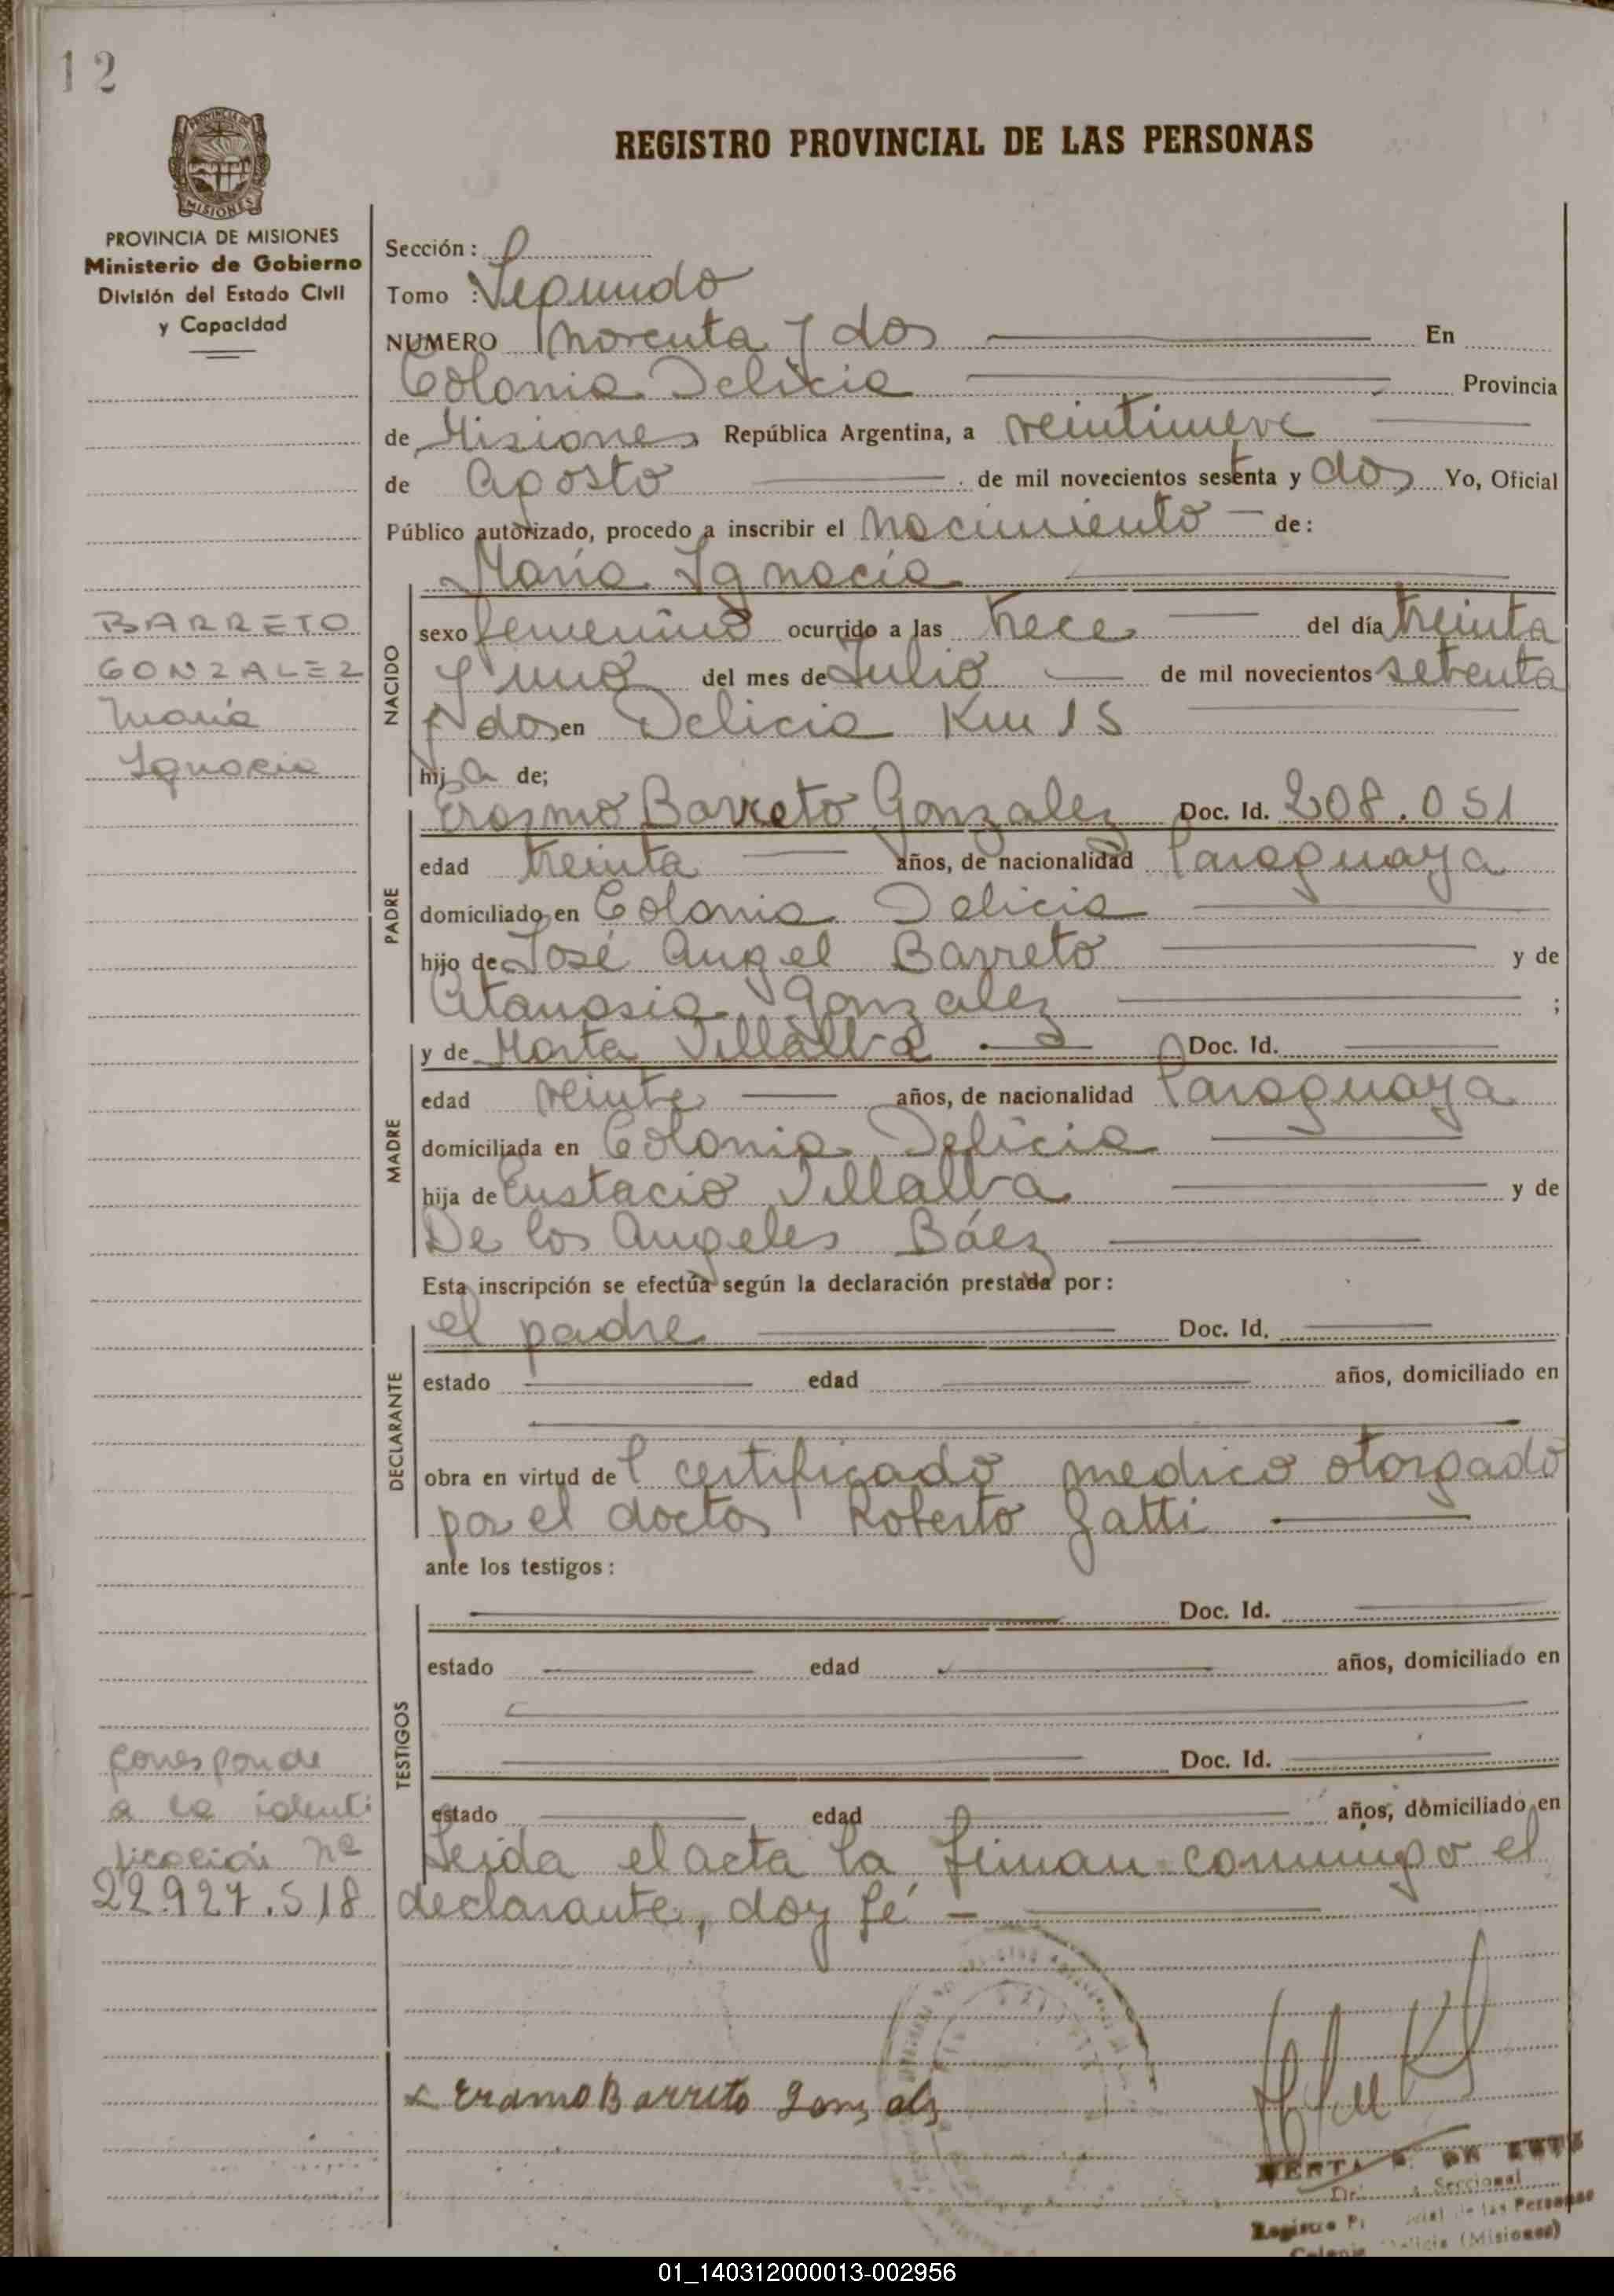 12
REGISTRO PROVINCIAL DE LAS PERSONAS
MISIONES
PROVINCIA DE MISIONES
Ministerio de Gobierno
División del Estado Civil
y Capacidad
Sección :
Tomo : Segundo
NUMERO Noventa y dos En
Colonia Delicia Provincia
de Misiones República Argentina, a veintinueve
de Agosto de mil novecientos sesenta y dos Yo, Oficial
Público autorizado, procedo a inscribir el nacimiento de:
María Ignacia
BARRETO
GONZALEZ
María
Ignacia
NACIDO
sexo femenino ocurrido a las trece del día treinta
y uno del mes de Julio de mil novecientos setenta
y dos en Delicia Km 15
hija de;
PADRE
Erasmo Barreto Gonzalez Doc. Id. 208.051
edad treinta años, de nacionalidad Paraguaya
domiciliado en Colonia Delicia
hijo de José Angel Barreto y de
Atanasia Gonzalez ;
MADRE
y de Marta Villalba Doc. Id.
edad veinte años, de nacionalidad Paraguaya
domiciliada en Colonia Delicia
hija de Eustacio Villalba y de
De los Angeles Báez
Esta inscripción se efectúa según la declaración prestada por:
DECLARANTE
el padre Doc. Id.
estado edad años, domiciliado en
obra en virtud del certificado medico otorgado
por el doctor Roberto Gatti
ante los testigos :
TESTIGOS
Doc. Id.
estado edad años, domiciliado en
Doc. Id.
estado edad años, domiciliado en
Corresponde
a la identi
ficación nº
22.927.518
Leida el acta la firman conmigo el
declarante, doy fé -
x Eramo Barreto Gonzalz
Seccional
de las Personas
(Misiones)
01_140312000013-002956